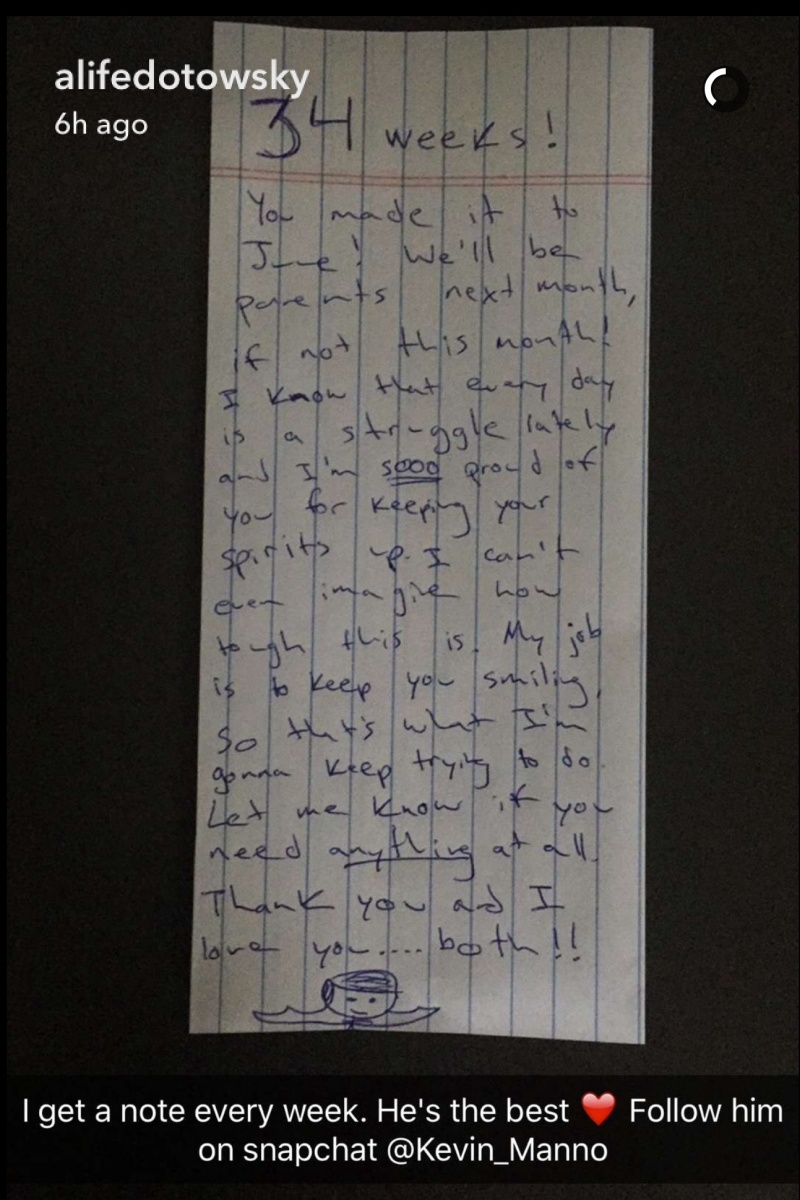 alifedotowsky
6h ago
34 weeks!
You made it to
June! We'll be
parents next month,
if not this month!
I know that every day
is a struggle lately
and I'm sooo proud of
you for keeping your
spirits up. I can't
even imagine how
tough this is. My job
is to keep you smiling,
so that's what I'm
gonna keep trying to do.
Let me know if you
need anything at all.
Thank you and I
love you.... both!!
I get a note every week. He's the best ❤️ Follow him
on snapchat @Kevin_Manno